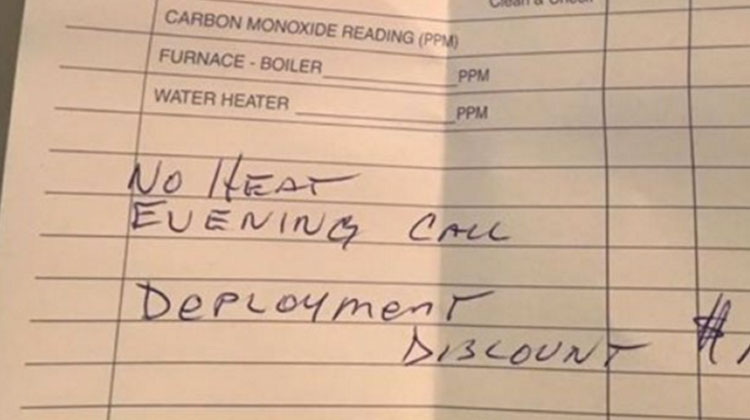 Clean & Check
CARBON MONOXIDE READING (PPM)
FURNACE - BOILER PPM
WATER HEATER PPM
NO HEAT
EVENING CALL
Deployment
DISCOUNT #